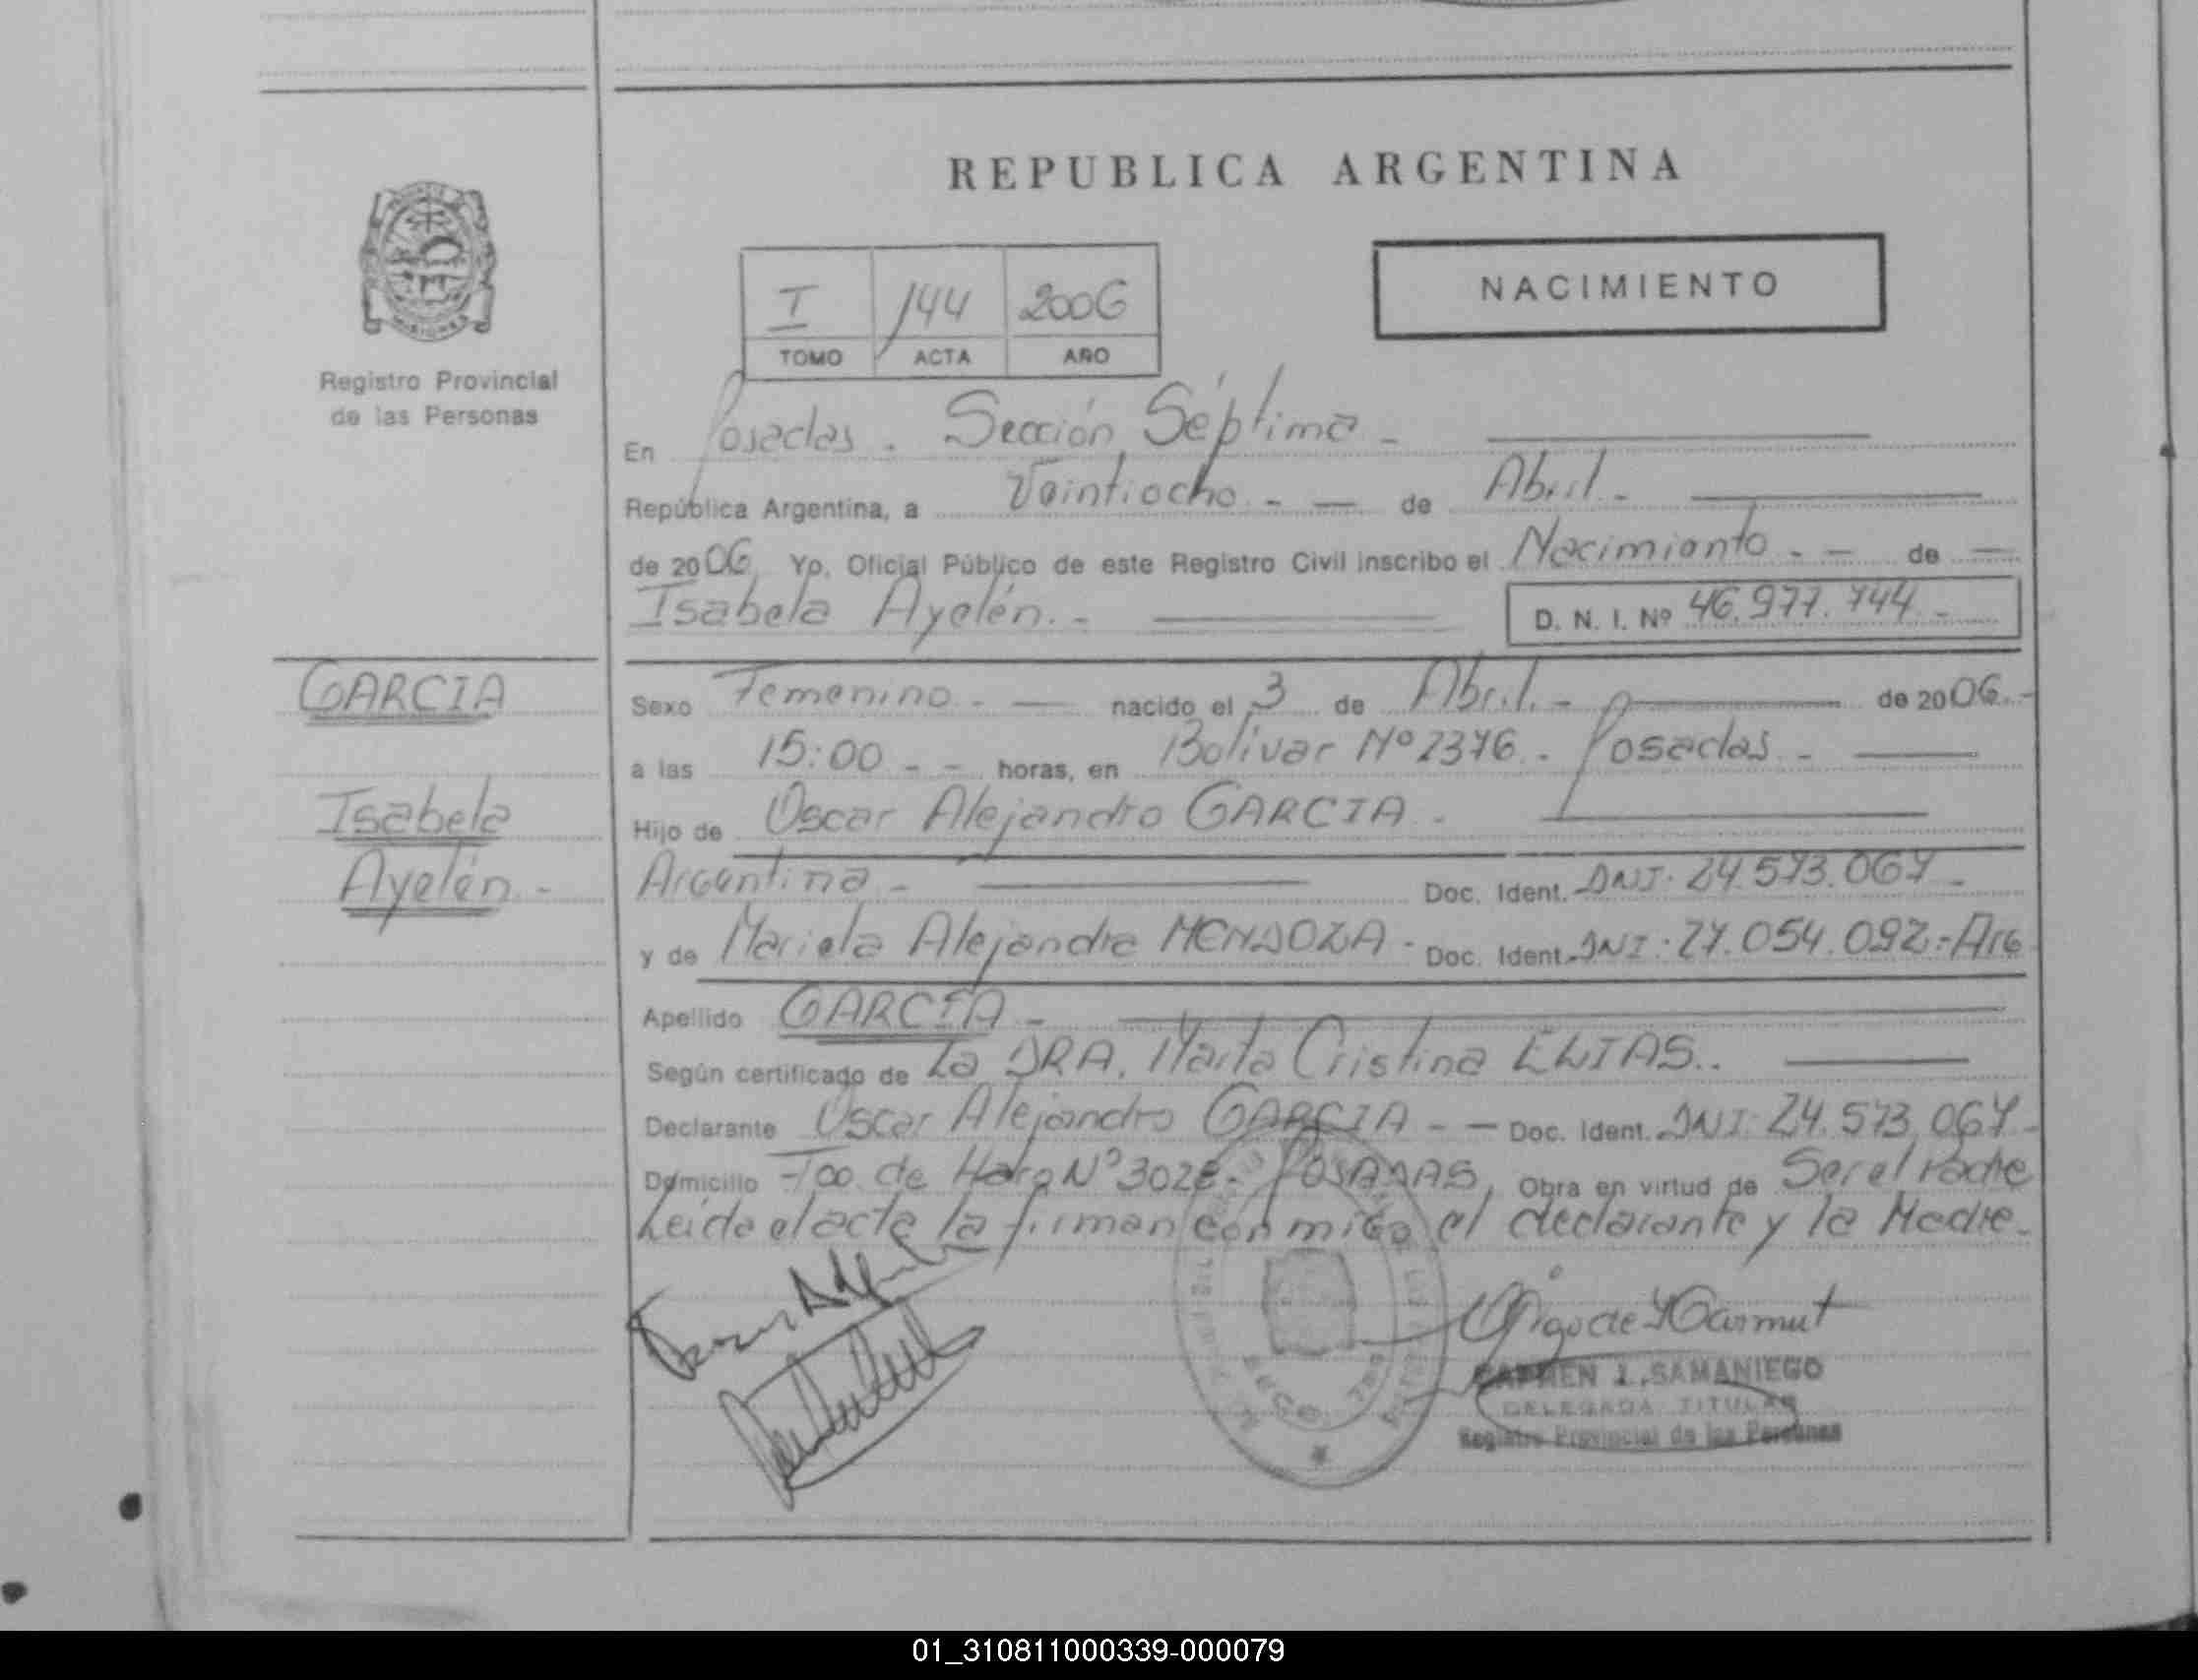 REPUBLICA ARGENTINA
NACIMIENTO
I 144 2006
TOMO ACTA AÑO
MISIONES
Registro Provincial
de las Personas
En Posadas. Sección Séptima -
República Argentina, a Veintiocho. - — de Abril. -
de 2006 Yo, Oficial Público de este Registro Civil inscribo el Nacimiento - — de —
Isabela Ayelén. - D. N. I. Nº 46.977.744 -
GARCIA
Isabela
Ayelén -
Sexo Femenino - — nacido el 3 de Abril. - de 2006. -
a las 15:00 - - horas, en Bolívar Nº 2376 - Posadas -
Hijo de Oscar Alejandro GARCIA -
Argentina - Doc. Ident. DNI. 24.573.067 -
y de Mariela Alejandra MENDOZA - Doc. Ident. DNI: 27.054.092 - Arg
Apellido GARCIA -
Según certificado de La DRA. Marta Cristina ELIAS. -
Declarante Oscar Alejandro GARCIA - — Doc. Ident. DNI: 24.573.067 -
Domicilio de Haro Nº 3028 - POSADAS, Obra en virtud de Ser el Padre
Leída el acta la firman conmigo el declarante y la Madre -
CARMEN J. SAMANIEGO
DELEGADA TITULAR
Registro Provincial de las Personas
01_310811000339-000079